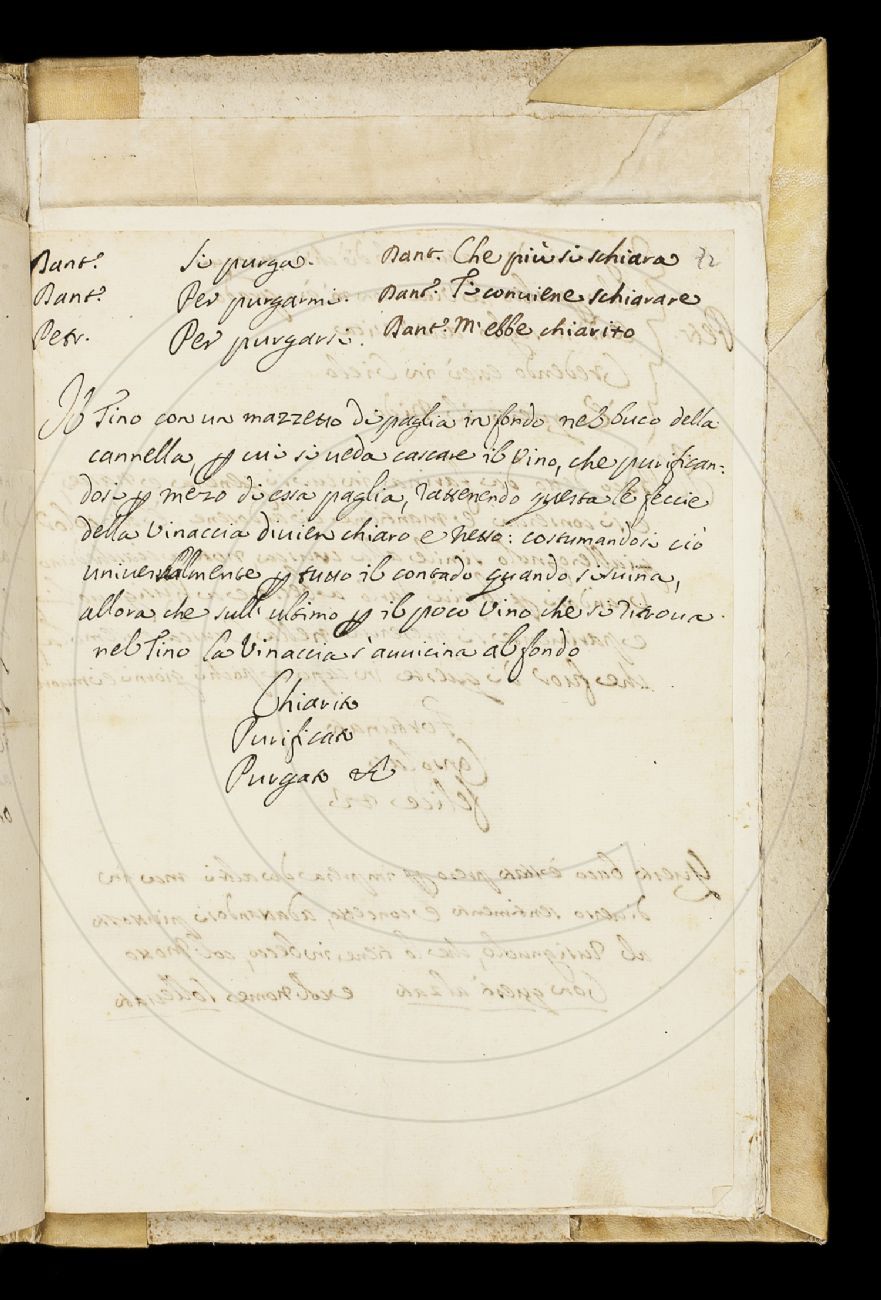 Dant.º Si purga. Dant. Che più si schiara 72
Dant.º Per purgarmi. Dant.º Ti conviene schiarare
Petr. Per purgarsi. Dant.º M'ebbe chiarito
Un Tino con un mazzetto di paglia in fondo nel buco della
cannella, ꝑ cui si ueda cascare il Vino, che purifican=
dosi ꝑ mezo di essa paglia, rattenendo questa le feccie
della Vinaccia divien chiaro e netto: costumandosi ciò
universalmente ꝑ tutto il contado quando si svina,
allora che sull'ultimo ꝑ il poco Vino che si ritrova
nel Tino la Vinaccia s'avvicina al fondo
Chiarito
Purificato
Purgato